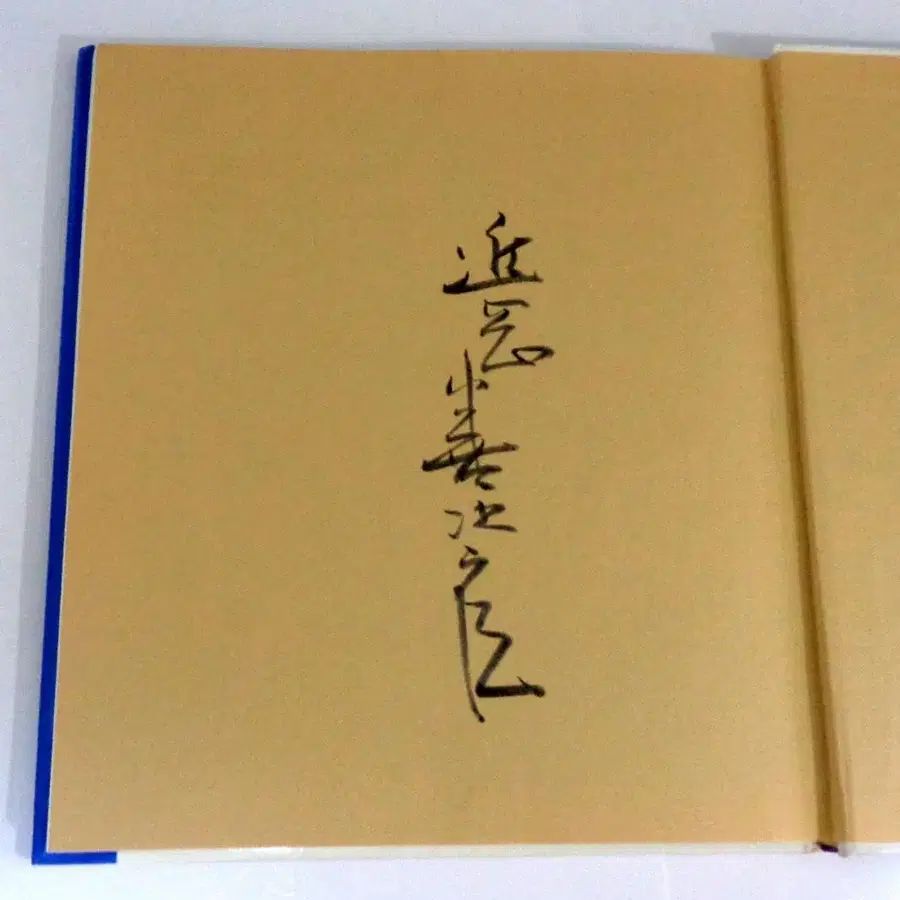 近岡善次郎